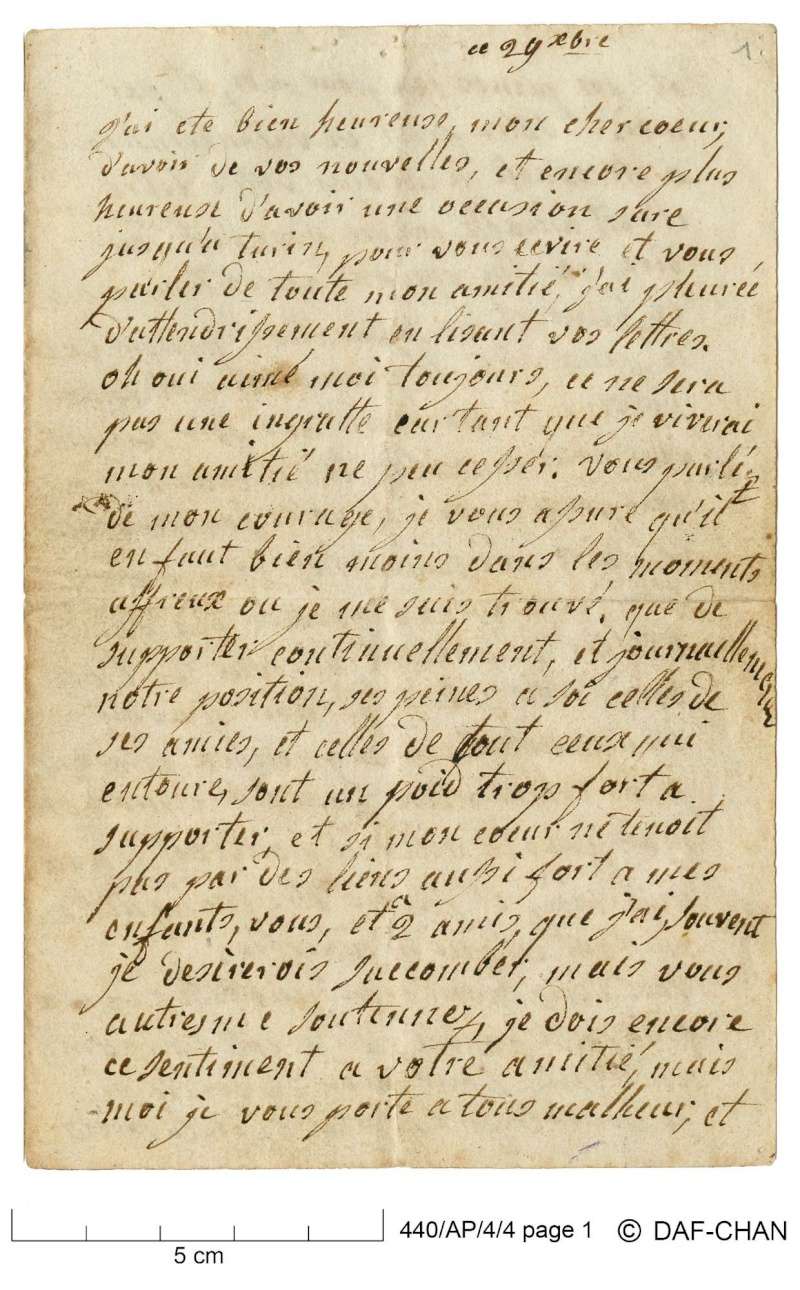 ce 29 xbre
1.
j'ai ete bien heureuse, mon cher coeur,
d'avoir de vos nouvelles, et encore plus
heureuse d'avoir une occasion sure
jusqu'a turin, pour vous ecrire et vous
parler de toute mon amitié, j'ai pleurée
d'attendrissement en lisant vos lettres.
oh oui aimé moi toujours, ce ne sera
pas une ingratte car tant que je viverai
mon amitié ne peu cesser. vous parlé
de mon courage, je vous assure qu'il
en faut bien moins dans les moments
affreux ou je me suis trouvé, que de
supporter continuellement, et journaellement
notre position, ses peines a soi celles de
ses amies, et celles de tout ceux qui
entoure, sont un poid trop fort a
supporter, et si mon coeur ne tenoit
pas par des liens aussi fort a mes
enfants, vous, et a 2 amis, que j'ai, souvent
je desirerois succomber, mais vous
autres me soutennez, je dois encore
ce sentiment a votre amitié, mais
moi je vous porte a tous malheur, et
5 cm
440/AP/4/4 page 1 © DAF-CHAN